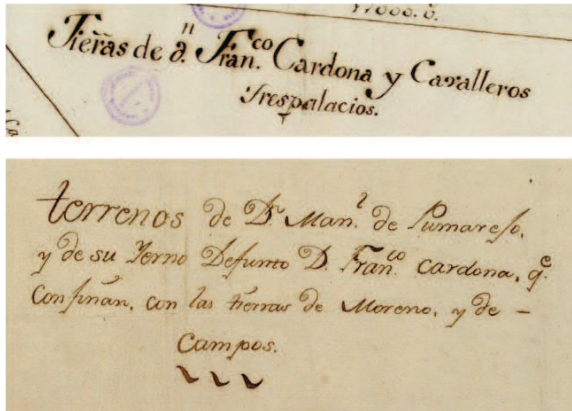 17000. v.
Tierras de d.ⁿ Fran.ᶜᵒ Cardona y Cavalleros
Trespalacios.
terrenos de D.ⁿ Man.ˡ de Pumarejo,
y de su Yerno Defunto D. Fran.ᶜᵒ Cardona, q.ᵉ
Confinan, con las tierras de Moreno, y de –
Campos.